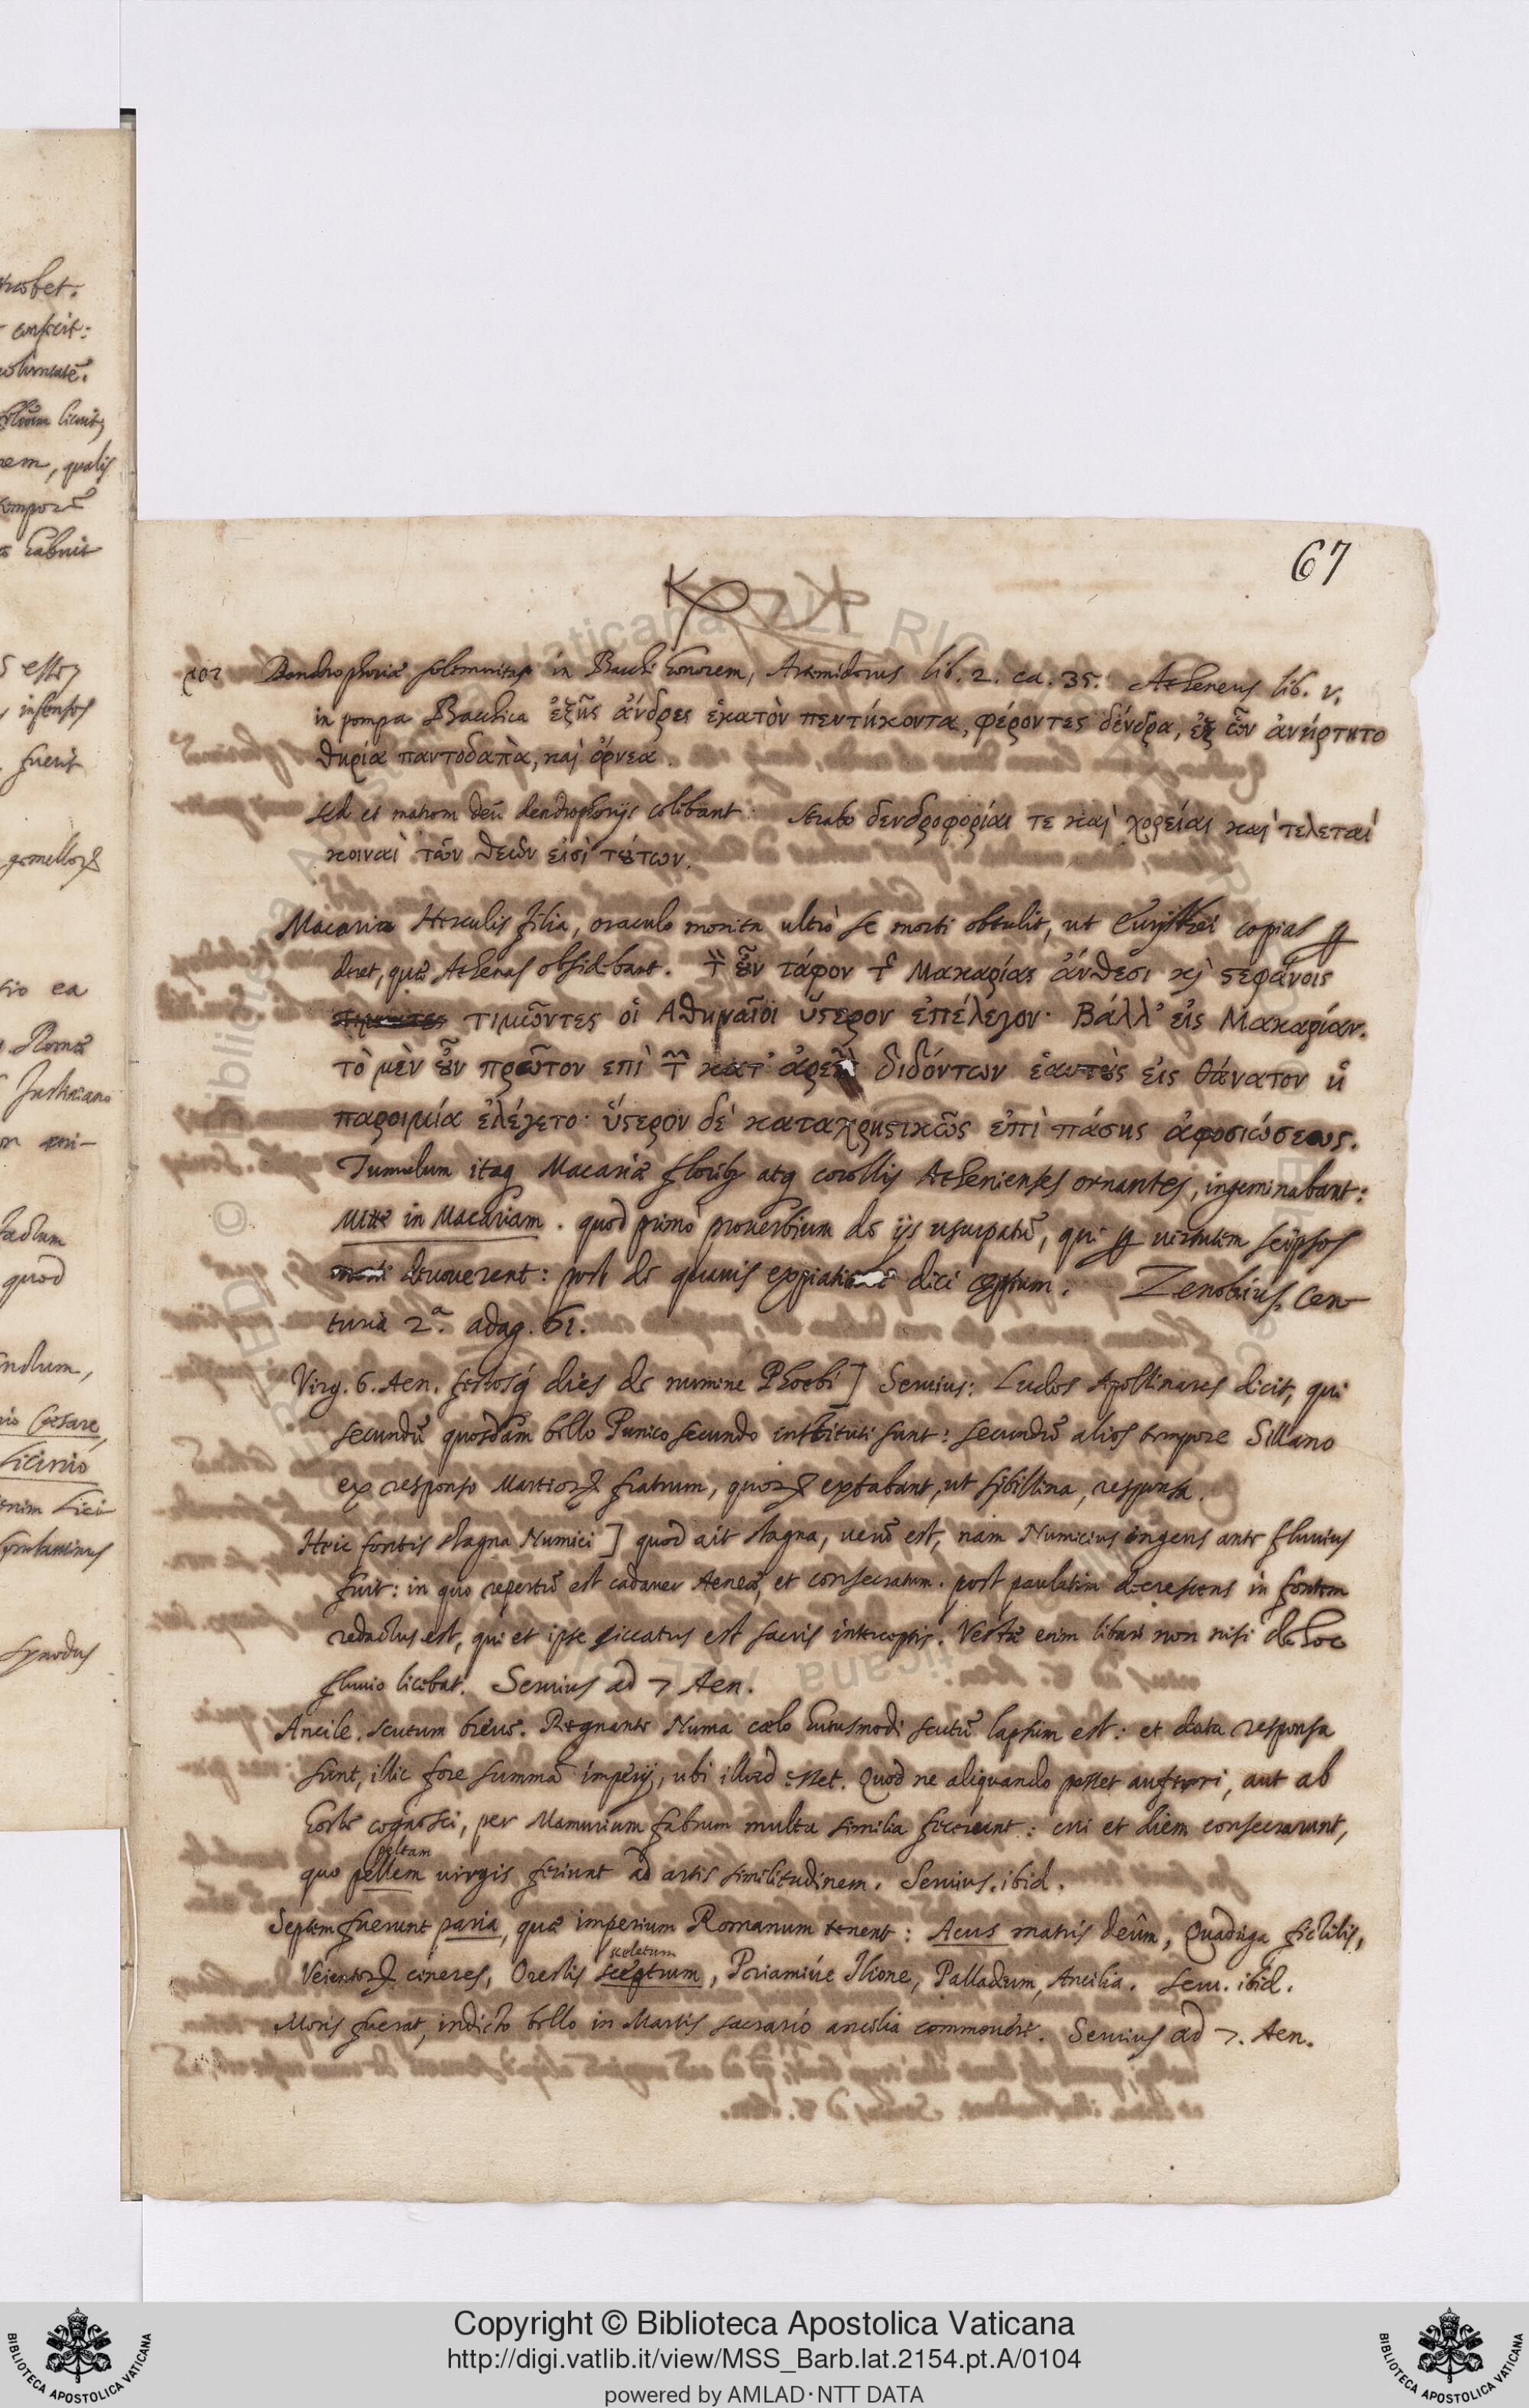 67
Dendrophoriæ solemnitas in Bacchi honorem, Artemidorus lib. 2. ca. 35. Atheneus lib. v.
in pompa Bacchica ἑξῆς ἄνδρες ἑκατὸν πεντήκοντα, φέροντες δένδρα, ἐξ ὧν ἀνήρτητο
θηρία παντοδαπὰ, καὶ ὄρνεα.
sed et matrem deũ dendrophorijs colebant. Strabo δενδροφορίαι τε καὶ χορείαι καὶ τελεταὶ
κοιναὶ τῶν θεῶν εἰσὶ τȣ́των.
Macaria Herculis filia, oraculo monita ultrò se morti obtulit, ut Eurysthei copias ꝑ
deret, quæ Athenas obsidebant. τ̀ ȣ̓͂ν τάφον τ͂ Μακαρίας ἄνθεσι κὶ ϛεφάνοις
τιμῶντες οἱ Ἀθηναῖοι ὕϛερον ἐπέλεγον· Βάλλ' εἰς Μακαρίαν.
τὸ μὲν ȣ̓͂ν πρῶτον ἐπὶ τ̃ κατ' ἀρετὴ διδόντων ἑαυτȣ̀ς εἰς θάνατον ἡ
παροιμία ἐλέγετο· ὕϛερον δὲ καταχρηϛικῶς ἐπὶ πάσης ἀφοσιώσεως.
Tumulum itaq Macariæ floribȝ atq corollis Athenienses ornantes, ingeminabant:
Mitte in Macariam. quod primò proverbium de ijs usurpatũ, qui ꝑ virtutem seipsos
morti devoverent: post de quavis dici cœptum. Zenobius. Cen
turia 2.ª adag. 61.
Virg. 6. Aen. festosq́ dies de numine Phoebi] Servius: Ludos Apollinares dicit, qui
secundũ quosdam bello Punico secundo instituti sunt: secundũ alios tempore Sillano
ex responso Martioꝝ fratrum, quoꝝ extabant, ut sibillina, responsa.
Hæc fontis stagna Numici] quod ait stagna, verũ est, nam Numicius ingens ante fluvius
fuit: in quo repertũ est cadaver Aeneæ, et consecratum. post paulatim decrescens in fontem
redactus est, qui et ipse siccatus est sacris interceptis. Vestæ enim libari non nisi de hoc
fluvio licebat. Servius ad 7 Aen.
Ancile. scutum breve. Regnante Numa cælo huiusmodi scutũ lapsum est: et data responsa
sunt, illic fore summã imperij, ubi illud esset. Quod ne aliquando posset auferri, aut ab
hoste cognosci, per Mamurium fabrum multa similia fecerunt: cui et diem consecrarunt,
peltam
quo pellem virgis feriunt ad artis similitudinem. Servius. ibid.
Septem fuerunt paria, quæ imperium Romanum tenent: Acus matris deûm, Quadriga fictilis,
sceletum
Veientoꝝ cineres, Orestis sceptrum, Priamive Ilione, Palladium, Ancilia. Serv. ibid.
Moris fuerat, indicto bello in Martis sacrario ancilia commovere. Servius ad 7. Aen.
Copyright © Biblioteca Apostolica Vaticana
http://digi.vatlib.it/view/MSS_Barb.lat.2154.pt.A/0104
powered by AMLAD·NTT DATA
BIBLIOTECA APOSTOLICA VATICANA
BIBLIOTECA APOSTOLICA VATICANA